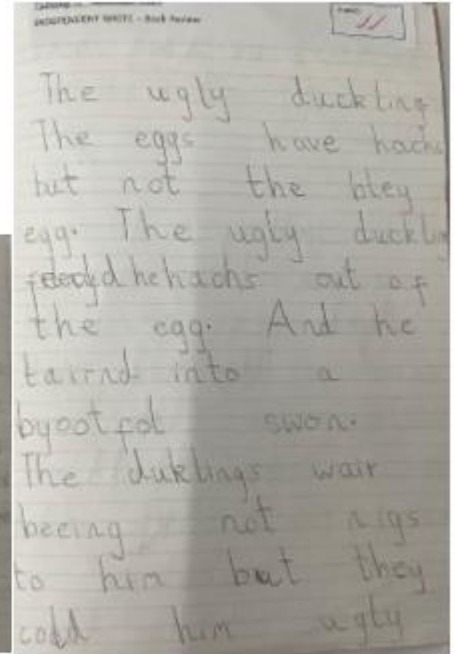 INDEPENDENT WRITE - Book Review
The ugly duckling
The eggs have hachs
but not the bley
egg. The ugly duckling
hehachs out of
the egg. And he
tairnd into a
byootfol swon.
The duklings wair
beeing not nigs
to him but they
cold him ugly